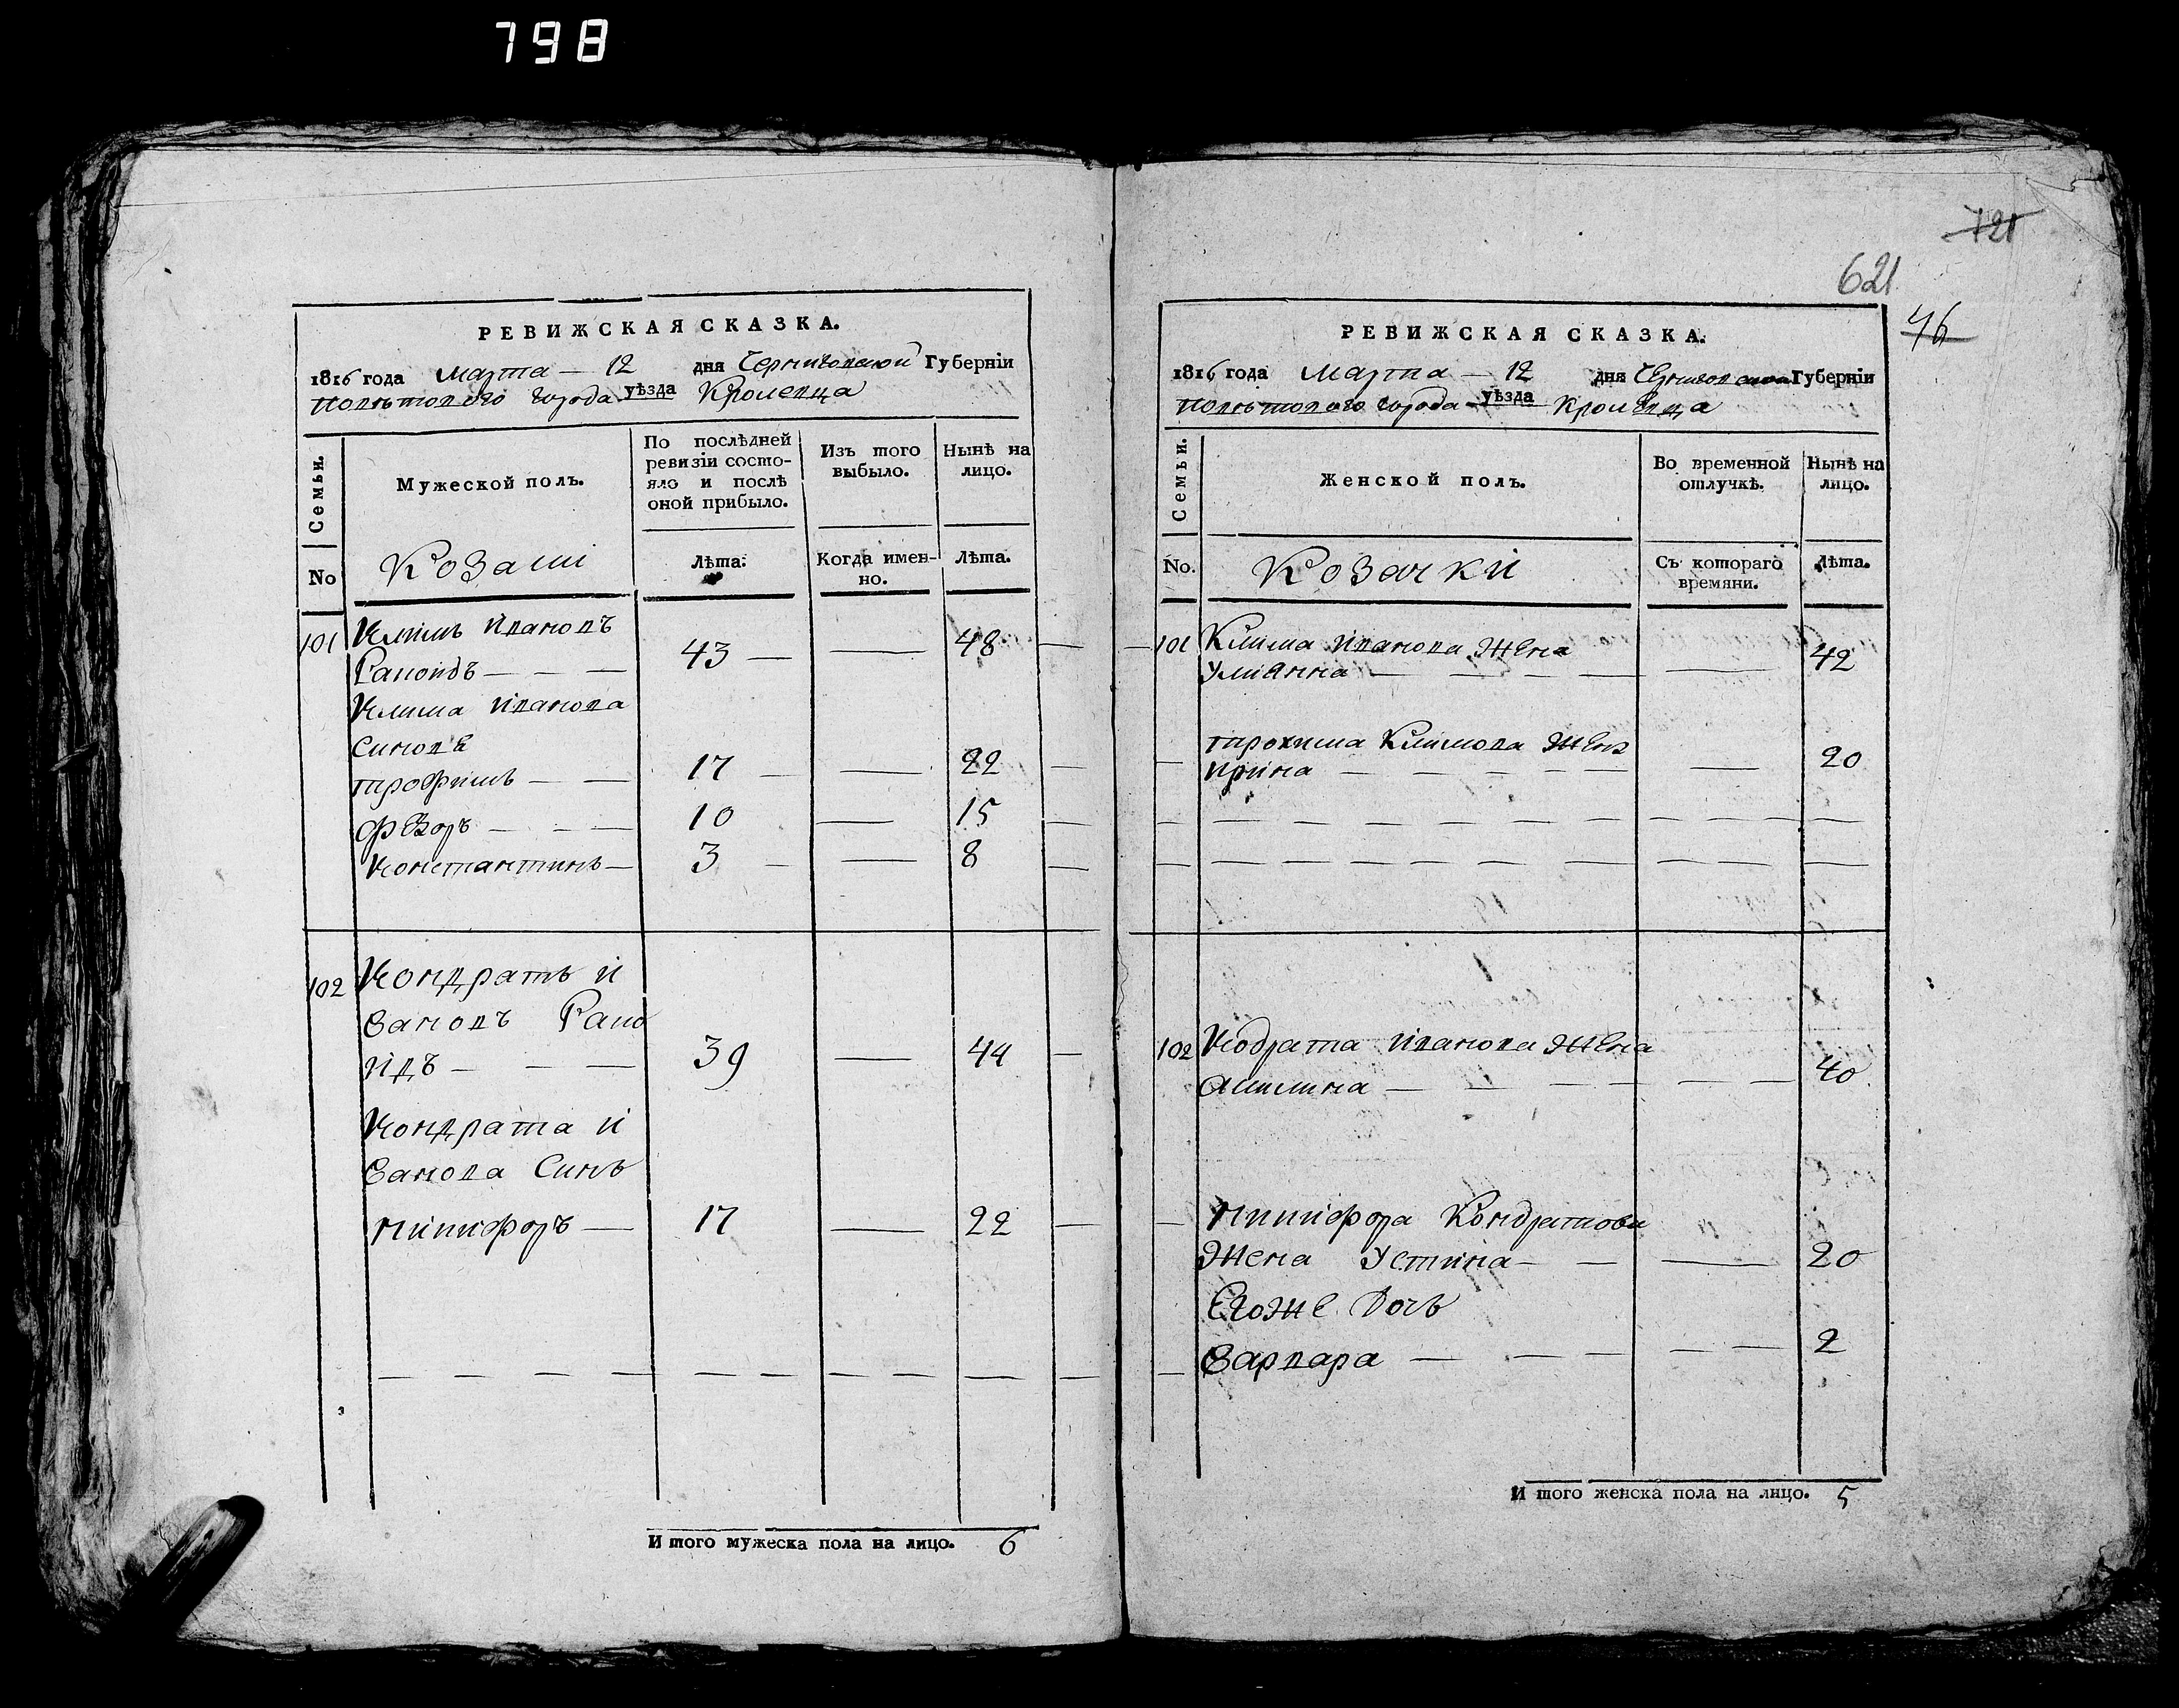 798
РЕВИЖСКАЯ СКАЗКА.
1816 года Марта — 12 дня Черниговской Губернїи
поветового города уѣзда Кролевца
Семьи.
Мужеской полъ.
По послѣдней ревизїи состояло и послѣ оной прибыло.
Изъ того выбыло.
Нынѣ на лицо.
No
Козаки
Лѣта.
Когда именно.
Лѣта.
101 Климъ Ивановъ
Рапоидъ — — — 43 — — 48 —
Клима Иванова
Синовѣ
трофимъ — — 17 — — 22 —
Фѣдоръ — — — 10 — 15 —
Константинъ — 3 — — 8 —
102 Кондратъ И
вановъ Рапо
идъ — — — 39 — 44 —
Кондрата И
ванова Синъ
никифоръ — 17 — 22 —
И того мужеска пола на лицо. 6
721
621
76
РЕВИЖСКАЯ СКАЗКА.
1816 года Марта — 12 дня Черниговской Губернїи
поветового города уѣзда Кролевца
Семьи.
Женской полъ.
Во временной отлучкѣ.
Нынѣ на лицо.
No.
Козачки
Съ котораго времяни.
Лѣта.
101 Клима Иванова Жена
Улиянна — — — — — 42
трохима Климова Жена
Ирина — — — — — — 20
102 Кодрата Иванова Жена
Акилина — — — — — — 40
Никифора Кондратова
Жена Устина — — — 20
Егоже Дочь
Варвара — — — — — 2
И того женска пола на лицо. 5